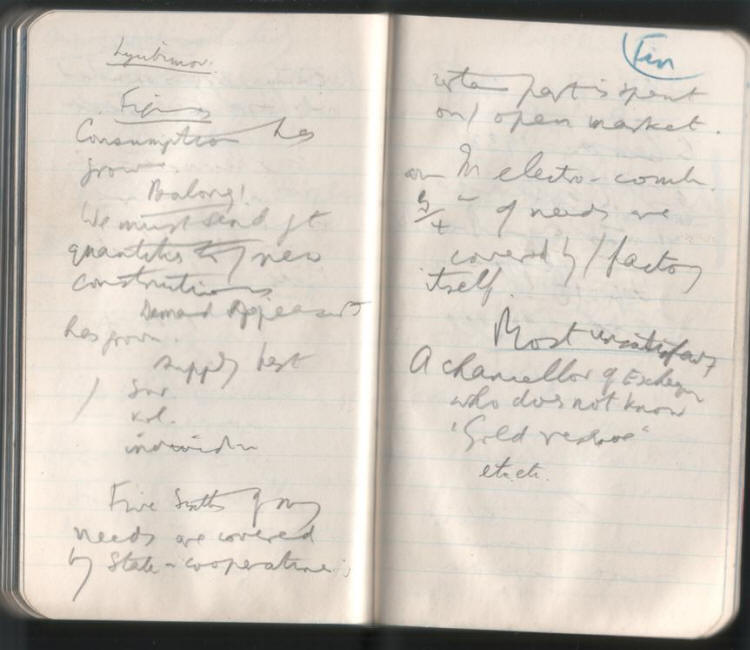 Lyubimov.
Figures
Consumption has
grown
Balony!
We must send gt
quantities to new
constructions
Demand of peasants
has grown.
supply best
Sov.
kol.
individu
Five Sixths of my
needs are covered
by State-cooperative
Fin
certain part is spent
on / open market.
In electro-comb.
5/4 of needs are
covered by / factory
itself.
Most unsatisfact
A chancellor of Excheqr
who does not know
'Gold reserve'
etc etc.